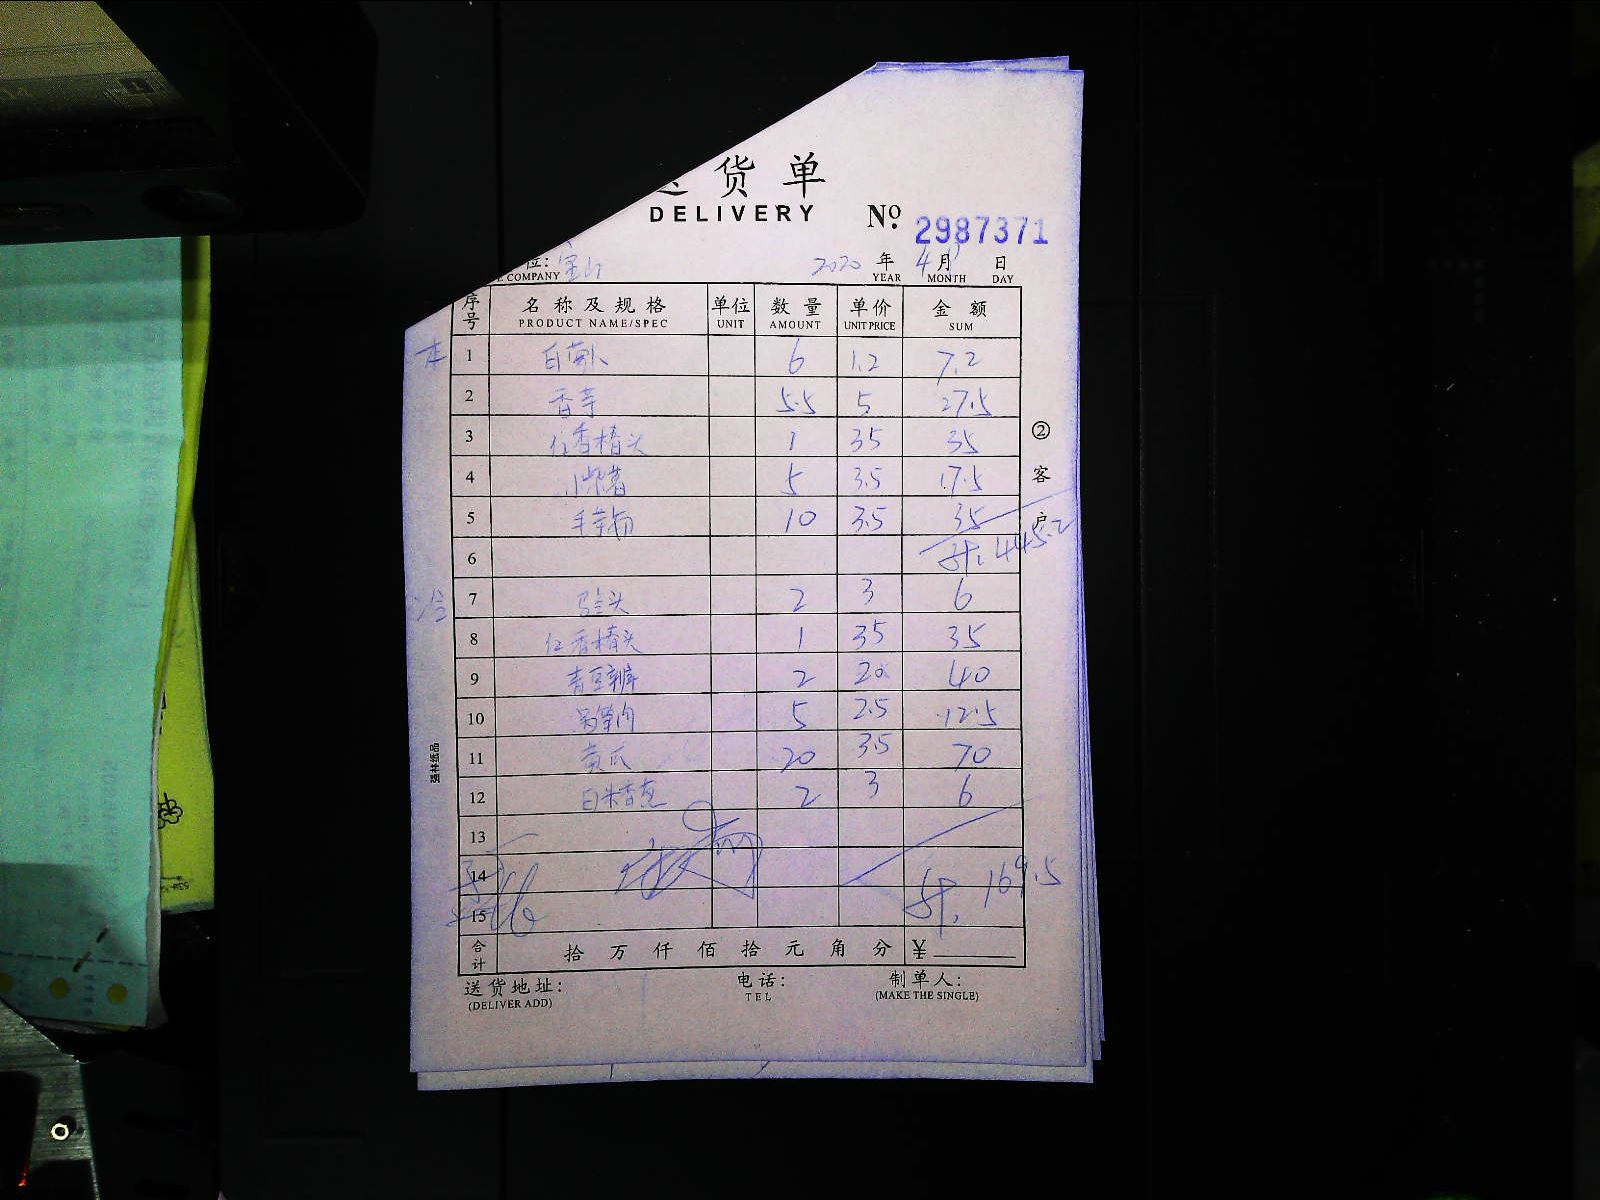 送货单
DELIVERY
No. 2987371
位: 宝山 2020 年 4月 日
E COMPANY YEAR MONTH DAY
序号 名称及规格 单位 数量 单价 金额
PRODUCT NAME/SPEC UNIT AMOUNT UNIT PRICE SUM
1 白萝卜 6 1.2 7.2
2 香芋 5.5 5 27.5
3 红香椿头 1 35 35
4 小紫薯 5 3.5 17.5
5 毛芋艿 10 3.5 35
6 计. 445.2
冷 7 2 3 6
8 红香椿头 1 35 35
9 青豆瓣 2 20 40
10 莴笋肉 5 2.5 12.5
11 黄瓜 20 3.5 70
12 白米香葱 2 3 6
13
14 计. 169.5
15
合计 拾 万 仟 佰 拾 元 角 分 ¥
送货地址: 电话: 制单人:
(DELIVER ADD) TEL (MAKE THE SINGLE)
②客户
强林纸品